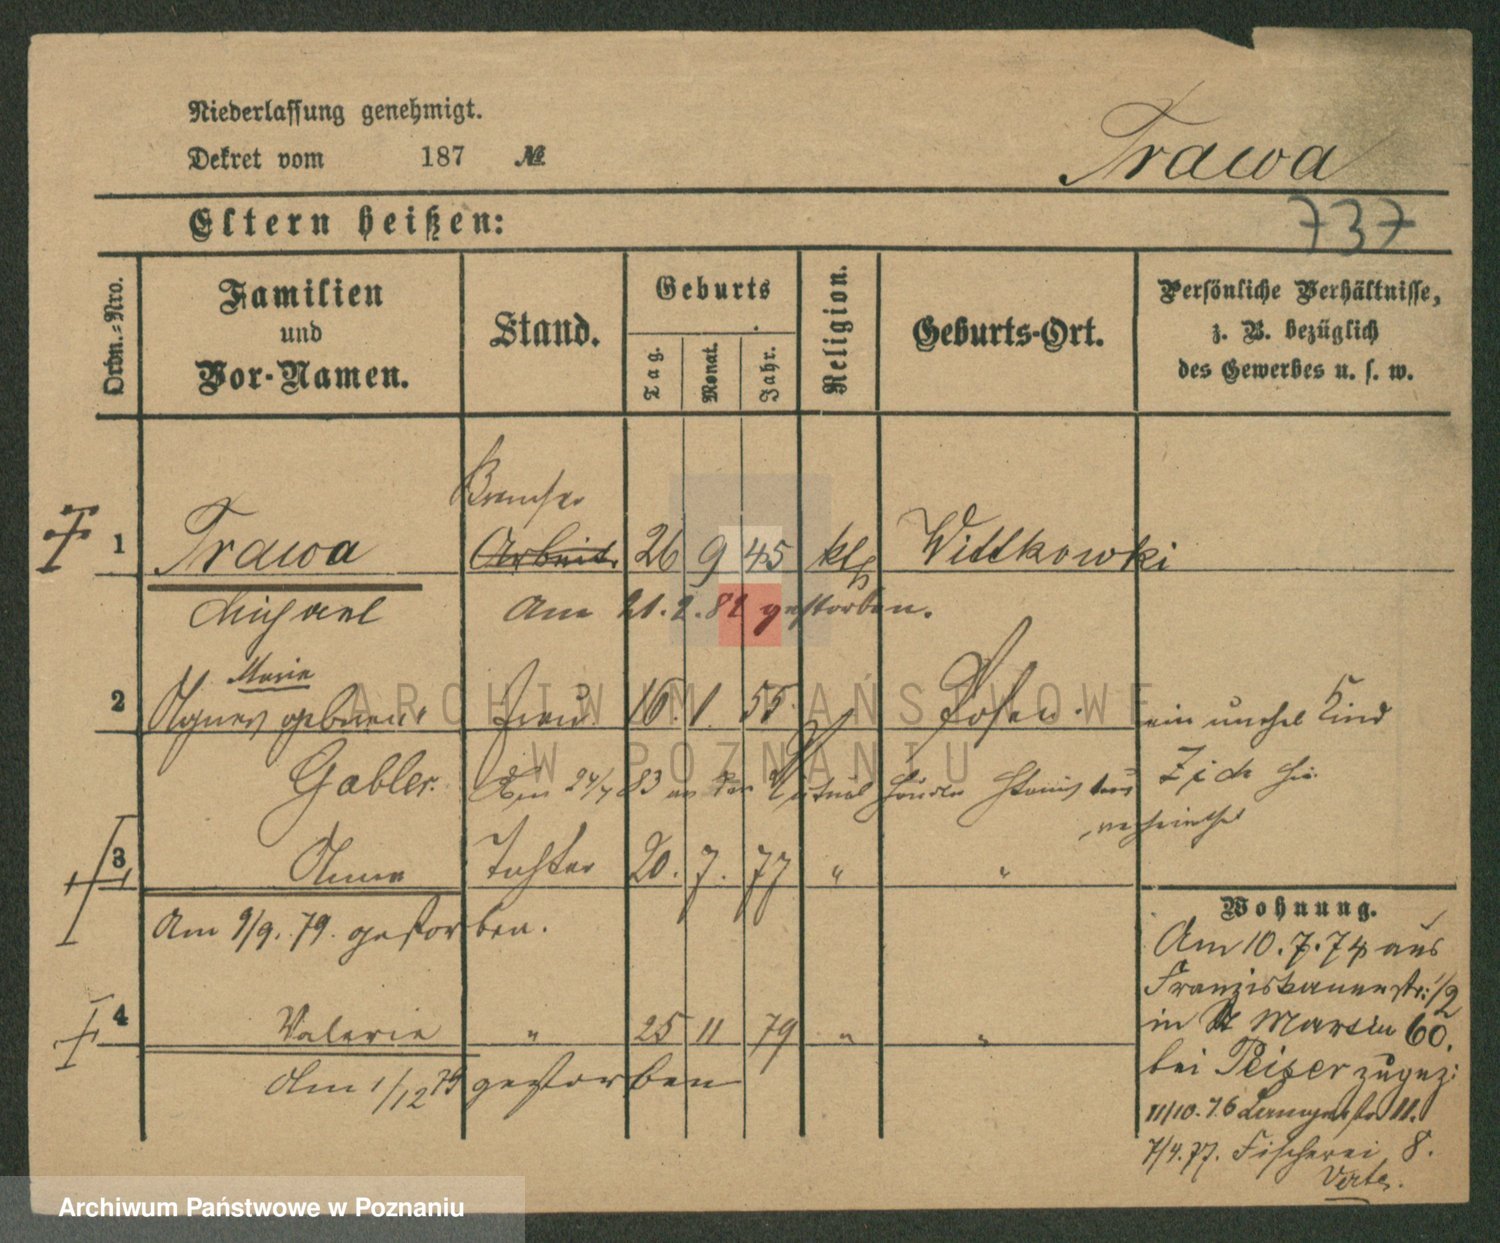 Niederlassung genehmigt.
Dekret vom 187 №
Trawa
Eltern heißen:
737
Ordn.-Nro.
Familien und Vor-Namen.
Stand.
Geburts
Tag.
Monat.
Jahr.
Religion.
Geburts-Ort.
Persönliche Verhältnisse,
z. B. bezüglich
des Gewerbes u. s. w.
Bremser
1 Trawa Arbeit. 26 9 45 kth Wittkowski
Michael Am 21.2.82 gestorben.
Marie
2 Agnes geborene Frau 16. 1. 55. Posen. ein unehel Kind
Gabler. 24/7 83 an den
verheirathet
3 Anna Tochter 20. 7. 77 " "
Am 9/9. 79. gestorben.
4 Valerie " 25 11 79 " "
Am 1/12 79 gestorben
Wohnung.
Am 10.7.74 aus
Franziskanerstr: 1/2
in St Martin 60.
bei Peiser zugez:
11/10.76 11.
7/4.77. Fischerei 8.
Verte.
ARCHIWUM PAŃSTWOWE
W POZNANIU
Archiwum Państwowe w Poznaniu